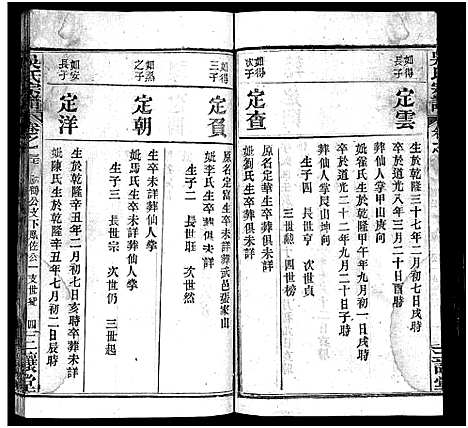 如得
長子
定雲
生於乾隆三十七年二月初一日戌時
卒於道光八年三月二十日酉時
葬仙人掌甲山庚向
妣崔氏生於乾隆甲午年九月初一日
卒於道光二十二年九月二十日子時
葬仙人掌艮山坤向
生子四 長世亨 次世貞
三世勲 四世榜
如得
次子
定查
原名定華生卒葬俱未詳
妣劉氏生卒葬俱未詳
如得
三子
定賓
原名定富生卒未詳葬武邑張家山
妣李氏生卒葬俱未詳
生子二 長世珏 次世然
如為
之子
定朝
生卒未詳葬仙人掌
妣馬氏生卒未詳葬仙人掌
生子三 長世宗 次世仍 三世起
如安
長子
定洋
生於乾隆辛丑年二月初七日亥時卒葬未詳
妣陳氏生於乾隆辛丑年七月初二日辰時
吳氏宗譜
卷之
公支下鳳佐公一支世紀
四
三讓堂